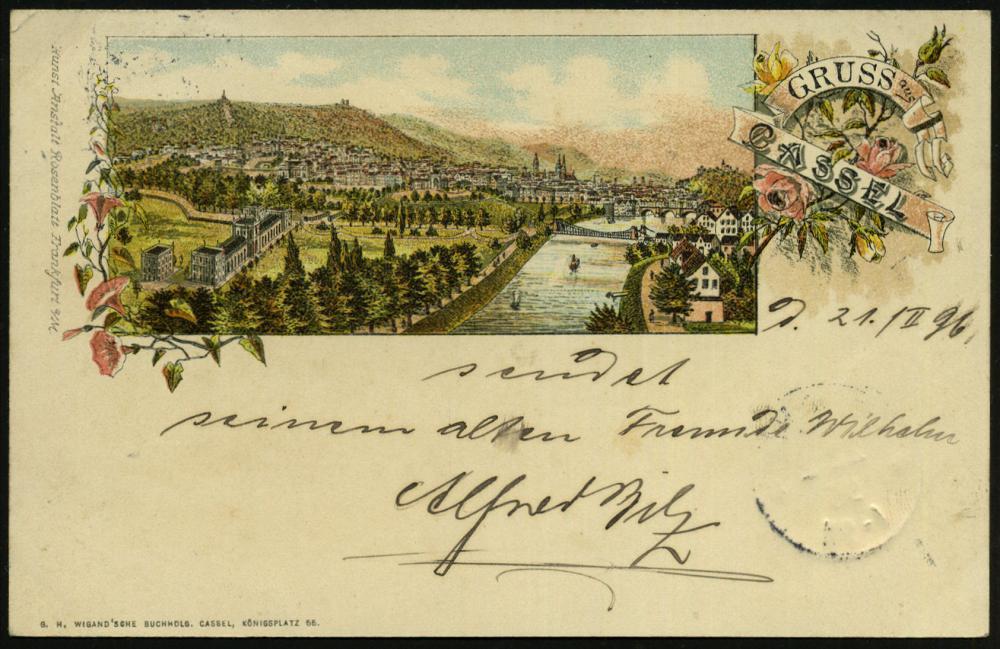 GRUSS aus
CASSEL
Kunst Anstalt Rosenblatt Frankfurt a/M.
d. 21./II 96.
sendet
seinem alten Freunde Wilhelm
Alfred Bilz
G. H. WIGAND'SCHE BUCHHDLG. CASSEL, KÖNIGSPLATZ 55.